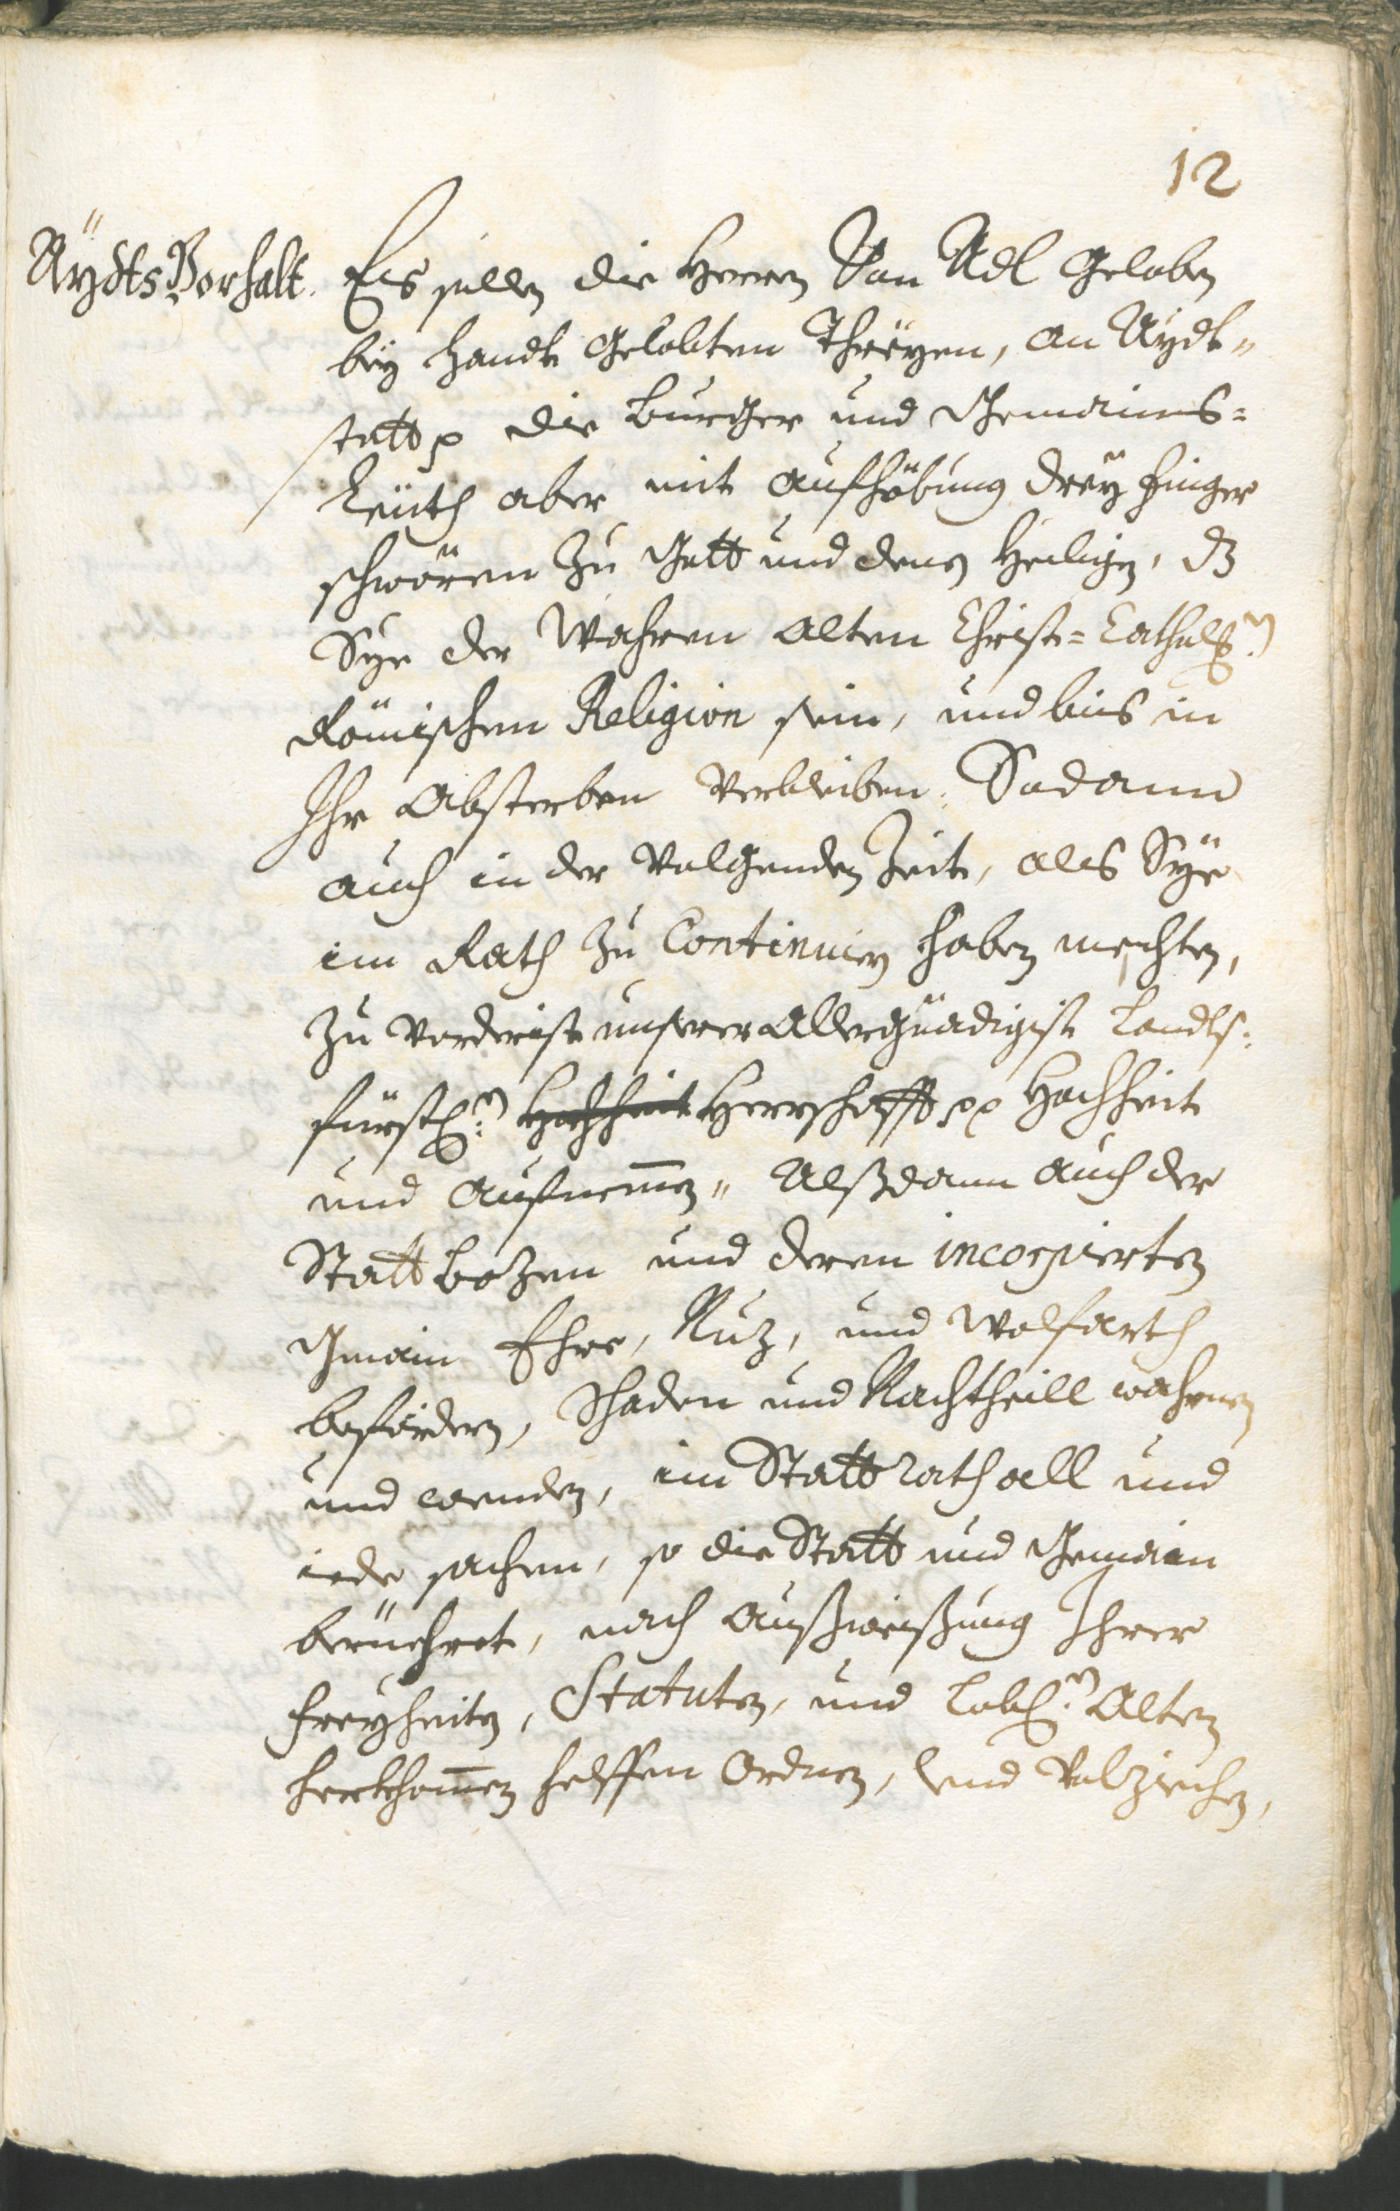 12
Aÿdts Vorhalt.
Es sollen die Herren Von Adl Geloben
beÿ handt Gelobten Threÿen, an Aÿdt„
statt p die Burger und Gemains-
Leüth aber mit aufhöbung dreÿ finger
schwören Zu Gott und denen Heiligen, dz
Sÿe der Wahren alten Christ-Catholl:n
Römischen Religion sein, und biß in
Ihr Absterben Verbleiben. Sodann
auch in der Volgenden Zeit, alß Sÿe
im Rath zu Continuien haben mechten,
Zu Vorderist unserer Allergnädigist Landts-
fürstl:n Hochheit Herrschafft pp Hochheit
und Aufnemmen„ Alßdann auch der
Statt Bozen und deren incorpierten
Gmain Ehre, Nuz, und Wolfarth
befördern, Schaden und Nachtheill wahrnen
und wenden, im Stattrath all und
iede sachen, so die Statt und Gemain
berüehret, nach Außweißung Ihrer
freyheiten, Statuten, und Lobl:n Alten
herkhommen helffen Ordnen, und Volziehen,